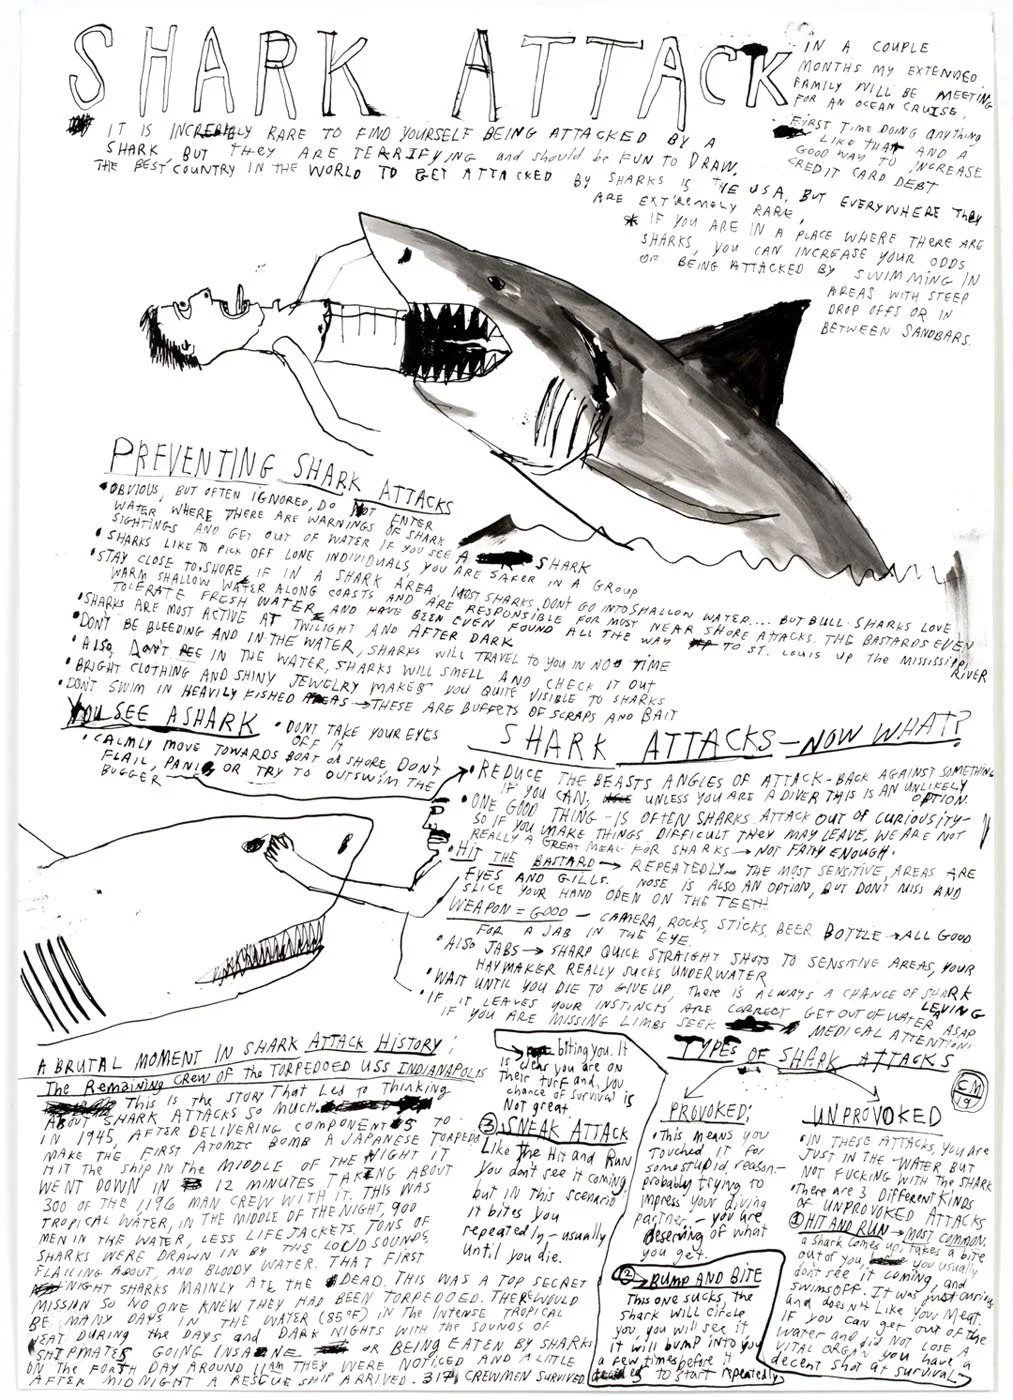 SHARK ATTACK
IN A COUPLE
MONTHS MY EXTENDED
FAMILY WILL BE MEETING
FOR AN OCEAN CRUISE,
FIRST TIME DOING anything
LIKE THAT AND A
GOOD WAY TO INCREASE
CREDIT CARD DEBT
IT IS INCREDIBLY RARE TO FIND YOURSELF BEING ATTACKED BY A
SHARK BUT THEY ARE TERRIFYING and should be FUN TO DRAW.
THE BEST COUNTRY IN THE WORLD TO GET ATTACKED BY SHARKS IS THE USA, BUT EVERYWHERE They
ARE EXTREMELY RARE,
* IF YOU ARE IN A PLACE WHERE THERE ARE
SHARKS, YOU CAN INCREASE YOUR ODDS
OF BEING ATTACKED BY SWIMMING IN
AREAS WITH STEEP
DROP OFFS OR IN
BETWEEN SANDBARS.
PREVENTING SHARK ATTACKS
• OBVIOUS, BUT OFTEN IGNORED, DO NOT ENTER
WATER WHERE THERE ARE WARNINGS OF SHARK
SIGHTINGS AND GET OUT OF WATER IF YOU SEE A SHARK
• SHARKS LIKE TO PICK OFF LONE INDIVIDUALS, YOU ARE SAFER IN A GROUP
• STAY CLOSE TO SHORE IF IN A SHARK AREA, MOST SHARKS DON'T GO INTO SHALLOW WATER.... BUT BULL SHARKS LOVE
WARM SHALLOW WATER ALONG COASTS AND ARE RESPONSIBLE FOR MOST NEAR SHORE ATTACKS. THE BASTARDS EVEN
TOLERATE FRESH WATER AND HAVE BEEN EVEN FOUND ALL THE WAY TO ST. LOUIS UP THE MISSISSIPPI
RIVER
• SHARKS ARE MOST ACTIVE AT TWILIGHT AND AFTER DARK
• DON'T BE BLEEDING AND IN THE WATER, SHARKS WILL TRAVEL TO YOU IN NO TIME
• Also, Don't PEE IN THE WATER, SHARKS WILL SMELL AND CHECK IT OUT
• BRIGHT CLOTHING AND SHINY JEWELRY MAKES YOU QUITE VISIBLE TO SHARKS
• DON'T SWIM IN HEAVILY FISHED AREAS → THESE ARE BUFFETS OF SCRAPS AND BAIT
YOU SEE A SHARK
• DONT TAKE YOUR EYES
OFF IT
• CALMLY MOVE TOWARDS BOAT OR SHORE, DON'T
FLAIL, PANIC OR TRY TO OUTSWIM THE
BUGGER
SHARK ATTACKS — NOW WHAT?
• REDUCE THE BEASTS ANGLES OF ATTACK - BACK AGAINST SOMETHING
IF YOU CAN, UNLESS YOU ARE A DIVER THIS IS AN UNLIKELY
OPTION.
• ONE GOOD THING - IS OFTEN SHARKS ATTACK OUT OF CURIOUSITY-
SO IF YOU MAKE THINGS DIFFICULT THEY MAY LEAVE, WE ARE NOT
REALLY A GREAT MEAL FOR SHARKS → NOT FATTY ENOUGH.
• HIT THE BASTARD → REPEATEDLY... THE MOST SENSITIVE AREAS ARE
EYES AND GILLS. NOSE IS ALSO AN OPTION, BUT DON'T MISS AND
SLICE YOUR HAND OPEN ON THE TEETH
WEAPON = GOOD — CAMERA, ROCKS, STICKS, BEER BOTTLE → ALL GOOD
FOR A JAB IN THE EYE.
• ALSO JABS → SHARP QUICK STRAIGHT SHOTS TO SENSITIVE AREAS, YOUR
HAYMAKER REALLY SUCKS UNDERWATER
• WAIT UNTIL YOU DIE TO GIVE UP, There IS ALWAYS A CHANCE OF SHARK
LEAVING
• IF IT LEAVES YOUR INSTINCTS ARE CORRECT GET OUT OF WATER ASAP
IF YOU ARE MISSING LIMBS SEEK MEDICAL ATTENTION!
A BRUTAL MOMENT IN SHARK ATTACK HISTORY;
The Remaining CREW OF the TORPEDOED USS INDIANAPOLIS
This is the STORY That Led to Thinking
ABOUT SHARK ATTACKS SO MUCH.
IN 1945, AFTER DELIVERING COMPONENTS TO
MAKE THE FIRST ATOMIC BOMB A JAPANESE TORPEDO
HIT THE SHIP IN THE MIDDLE OF THE NIGHT IT
WENT DOWN IN 12 MINUTES TAKING ABOUT
300 OF THE 1196 MAN CREW WITH IT. THIS WAS
TROPICAL WATER, IN THE MIDDLE OF THE NIGHT, 900
MEN IN THE WATER, LESS LIFE JACKETS. TONS OF
SHARKS WERE DRAWN IN BY THE LOUD SOUNDS,
FLAILING ABOUT, AND BLOODY WATER. THAT FIRST
NIGHT SHARKS MAINLY ATE THE DEAD. THIS WAS A TOP SECRET
MISSION SO NO ONE KNEW THEY HAD BEEN TORPEDOED. THERE WOULD
BE MANY DAYS IN THE WATER (85°F) IN THE INTENSE TROPICAL
HEAT DURING the DAYS and DARK NIGHTS WITH THE SOUNDS OF
SHIPMATES GOING INSANE OR BEING EATEN BY SHARKS
ON THE FORTH DAY AROUND 11AM THEY WERE NOTICED AND A LITTLE
AFTER MIDNIGHT A RESCUE SHIP ARRIVED. 317 CREWMEN SURVIVED
TYPES OF SHARK ATTACKS
CM
19
PROVOKED:
• This means you
Touched it for
some stupid reason—
probably trying to
impress your diving
partner — you are
deserving of what
you get.
UNPROVOKED
• IN THESE ATTACKS, you ARE
JUST IN THE WATER BUT
NOT FUCKING WITH The SHARK
• There ARE 3 Different KINDS
OF UNPROVOKED ATTACKS
① HIT AND RUN → MOST COMMON.
a Shark comes up, takes a bite
out of you, you usually
dont see it coming, and
swims off. It was just curious
and doesn't Like you Meat.
IF you can get out of the
water and did Not LOSE A
VITAL ORGAN you have a
decent shot at survival
② → BUMP AND BITE
This one sucks, the
shark will circle
you, you will see it
it will bump into you
a few times before it
decides to start repeatedly
biting you. It
is clear you are on
their turf and you
chance of survival is
Not great.
③ SNEAK ATTACK
Like the Hit and Run
You don't see it coming
but in this scenario
it bites you
repeatedly - usually
until you die.